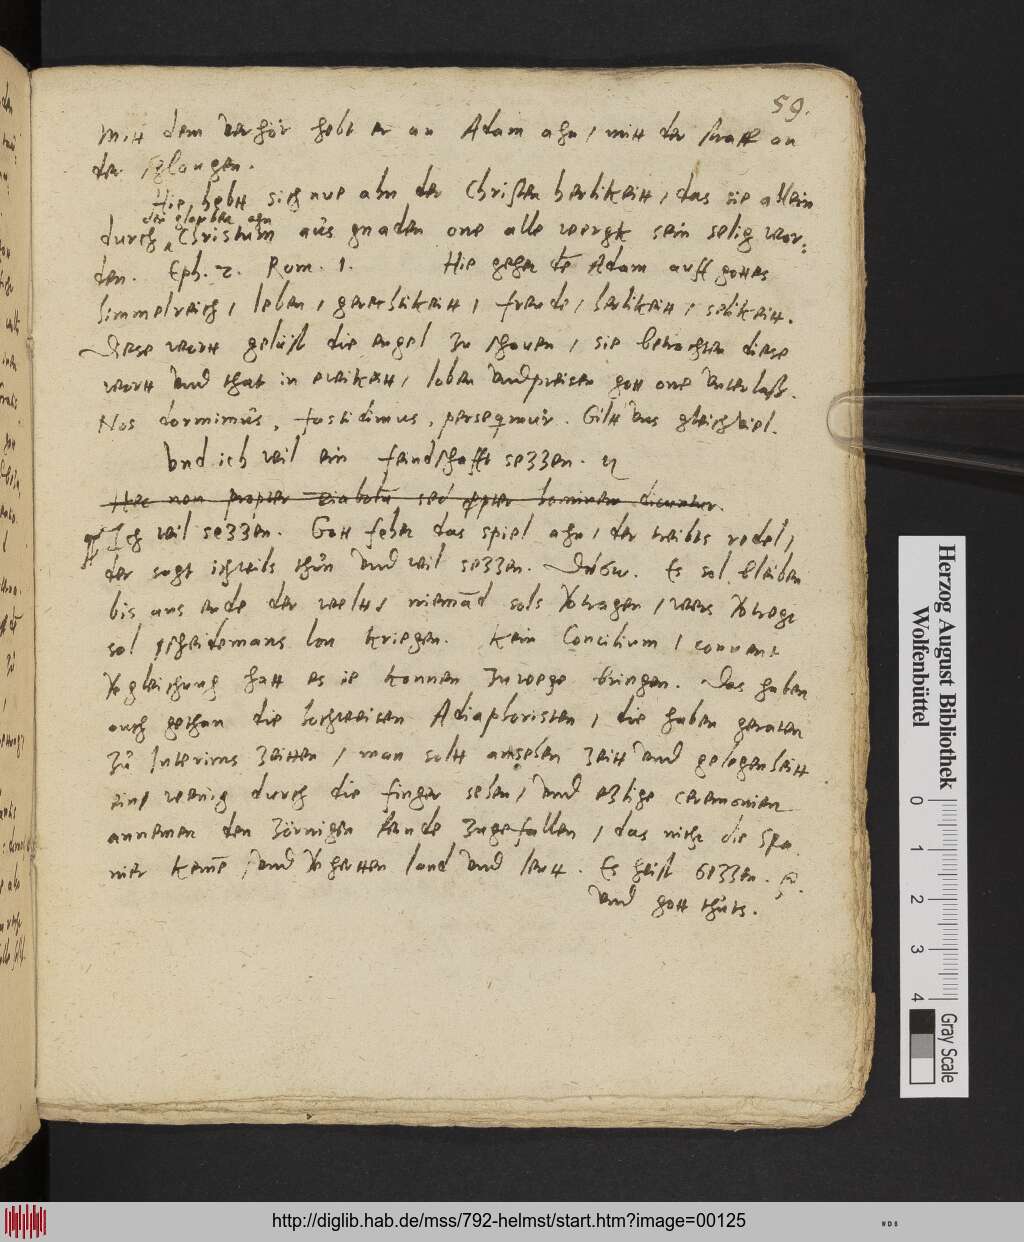 59.
Mitt dem verhör hebt er an Adam ahn / mitt der straff an
der schlangen.
Hie hebtt sich nue ahn der Christen herlikeitt, das sie allein
den glauben ahn
durch Christum aus gnaden one alle wergk sein selig wor:
den. Eph. 2. Rom. 1. Hie gehet dē Adam auff gottes
himmelreich / leben / gerechtikeitt / freude / herlikeitt / selikeitt.
Diese wortt gelüst die engel zu schauen / sie betrachten diese
wortt und that in ewikeitt, loben und preisen gott one unterlaß.
Nos dormimus, fastidimus, persequimur. Gilt uns gleich viel.
Und ich wil ein feindschafft sezzen.
Hec non propter diabolū sed propter hominem dicuntur.
Ich wil sezzen. Gott feher das spiel ahn / der treibts redel /
der sagt ich wils thun und wil sezzen. Es sol bleiben
bis ans ende der welt / niemād sols vtragen / wers vtregt
sol scheidemans lon kriegen. Kein Concilium / convent
vgleichung hatt es ie konnen zuwege bringen. Das haben
auch gethan die hochweisen Adiaphoristen / die haben geraten
zu Interims zeitten / man soltt ansehen zeitt und gelegenheitt
ein wenig durch die finger sehen / und etzlige ceremonien
annemen den zörnigen feinde zugefallen / das nicht die Spa
nier kemē und vhertten land und leutt. Es heist sezzen.
und gott thuts.
Herzog August Bibliothek
Wolfenbüttel
0 1 2 3 4
Gray Scale
http://diglib.hab.de/mss/792-helmst/start.htm?image=00125